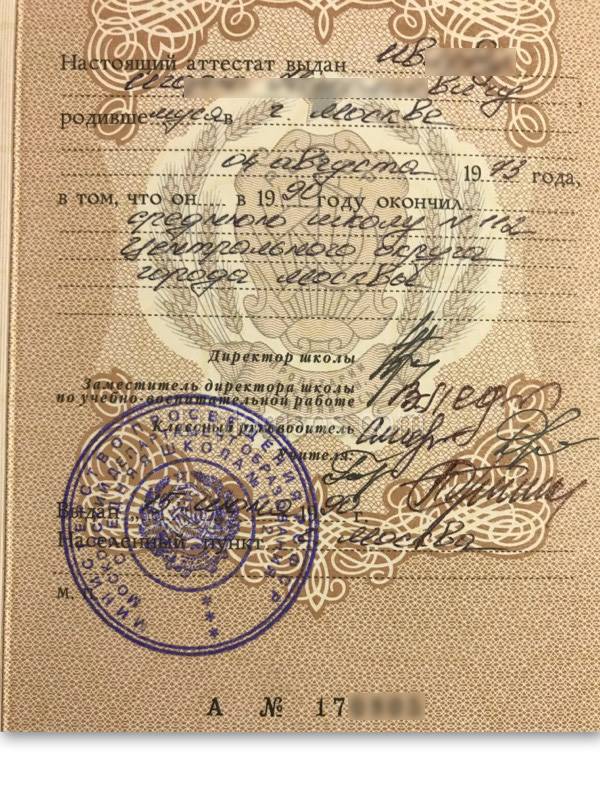 Настоящий аттестат выдан Ив
вичу
родившемуся в г. Москве
04 августа 1973 года,
в том, что он в 1990 году окончил
среднюю школу № 112
Центрального округа
города Москвы
Директор школы
Заместитель директора школы
по учебно-воспитательной работе
Классный руководитель
Учителя:
Выдан „25" июня 1990 г.
Населенный пункт Москва
МИНИСТЕРСТВО ПРОСВЕЩЕНИЯ РСФСР
М. П.
А № 17